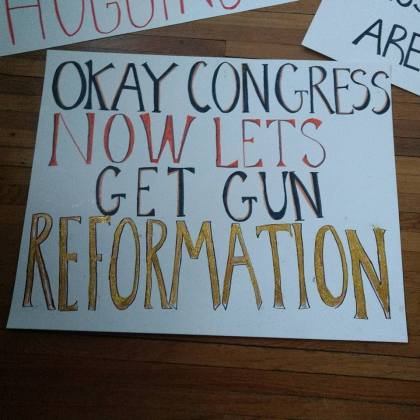 HUGGING
ARE
OKAY CONGRESS
NOW LETS
GET GUN
REFORMATION